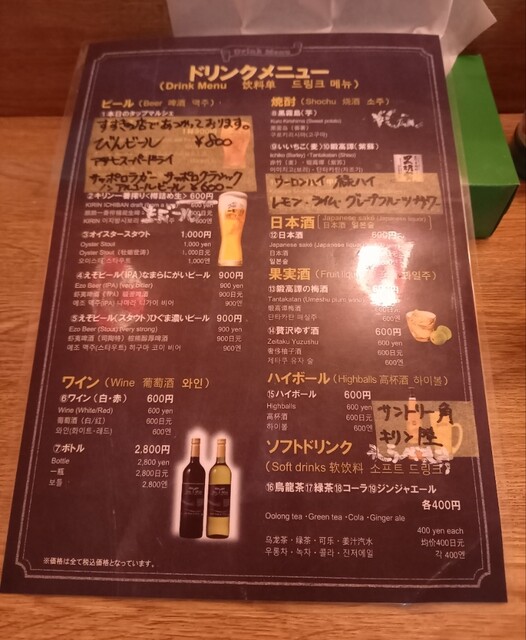 Drink Menu
ドリンクメニュー
(Drink Menu 饮料单 드링크 메뉴)
ビール (Beer 啤酒 맥주)
①本日のタップマルシェ
すすきの店であつかっております。
びんビール ¥800
アサヒスーパードライ
サッポロラガー サッポロクラシック
ノンアルコールビール ¥600
②キリン一番搾り(樽詰め生) 600円
KIRIN ICHIBAN
600日元
600엔
③オイスタースタウト 1,000円
Oyster Stout 1,000 yen
Oyster Stout 1,000日元
오이스터 스타우트 1,000엔
④えぞビール(IPA)なまらにがいビール 900円
Ezo Beer (IPA) (very bitter) 900 yen
900日元
에조 맥주(IPA) 나마라 니가이 비어 900엔
⑤えぞビール(スタウト)ひぐま濃いビール 900円
Ezo Beer (Stout) (Very strong) 900 yen
900日元
에조 맥주(스타우트) 히구마 코이 비어 900엔
ワイン (Wine 葡萄酒 와인)
⑥ワイン(白・赤) 600円
Wine (White/Red) 600 yen
葡萄酒(白/红) 600日元
와인(화이트・레드) 600엔
⑦ボトル 2,800円
Bottle 2,800 yen
一瓶 2,800日元
보틀 2,800엔
※価格は全て税込価格となっています。
焼酎 (Shochu 烧酒 소주)
⑧黒霧島(芋)
Kuro Kirishima (Sweet potato)
쿠로키리시마(고구마)
⑨いいちこ(麦)⑩鍛高譚(紫蘇)
Iichiko (Barley)・Tantakatan (Shiso)
ウーロンハイ 緑ハイ
レモン・ライム・グレープフルーツサワー
日本酒 (Japanese sake (Japanese liquor) 日本酒 일본술)
⑫日本酒 600円
Japanese sake (Japanese liquor)
日本酒
일본술
果実酒 (Fruit liqu 과일주)
⑬鍛高譚の梅酒
Tantakatan (Umeshu plum wine)
鍛高譚梅酒
탄타카탄 매실주
⑭贅沢ゆず酒 600円
Zeitaku Yuzushu
奢侈柚子酒
제타쿠 유자 술
ハイボール (Highballs 高杯酒 하이볼)
⑮ハイボール 600円
Highballs 600 yen
高杯酒 600日元
하이볼 600엔
サントリー角
キリン陸
ソフトドリンク
(Soft drinks 软饮料 소프트 드링크)
⑯烏龍茶⑰緑茶⑱コーラ⑲ジンジャエール
各400円
Oolong tea・Green tea・Cola・Ginger ale
400 yen each
乌龙茶・绿茶・可乐・姜汁汽水 均价400日元
우롱차・녹차・콜라・진저에일 각 400엔